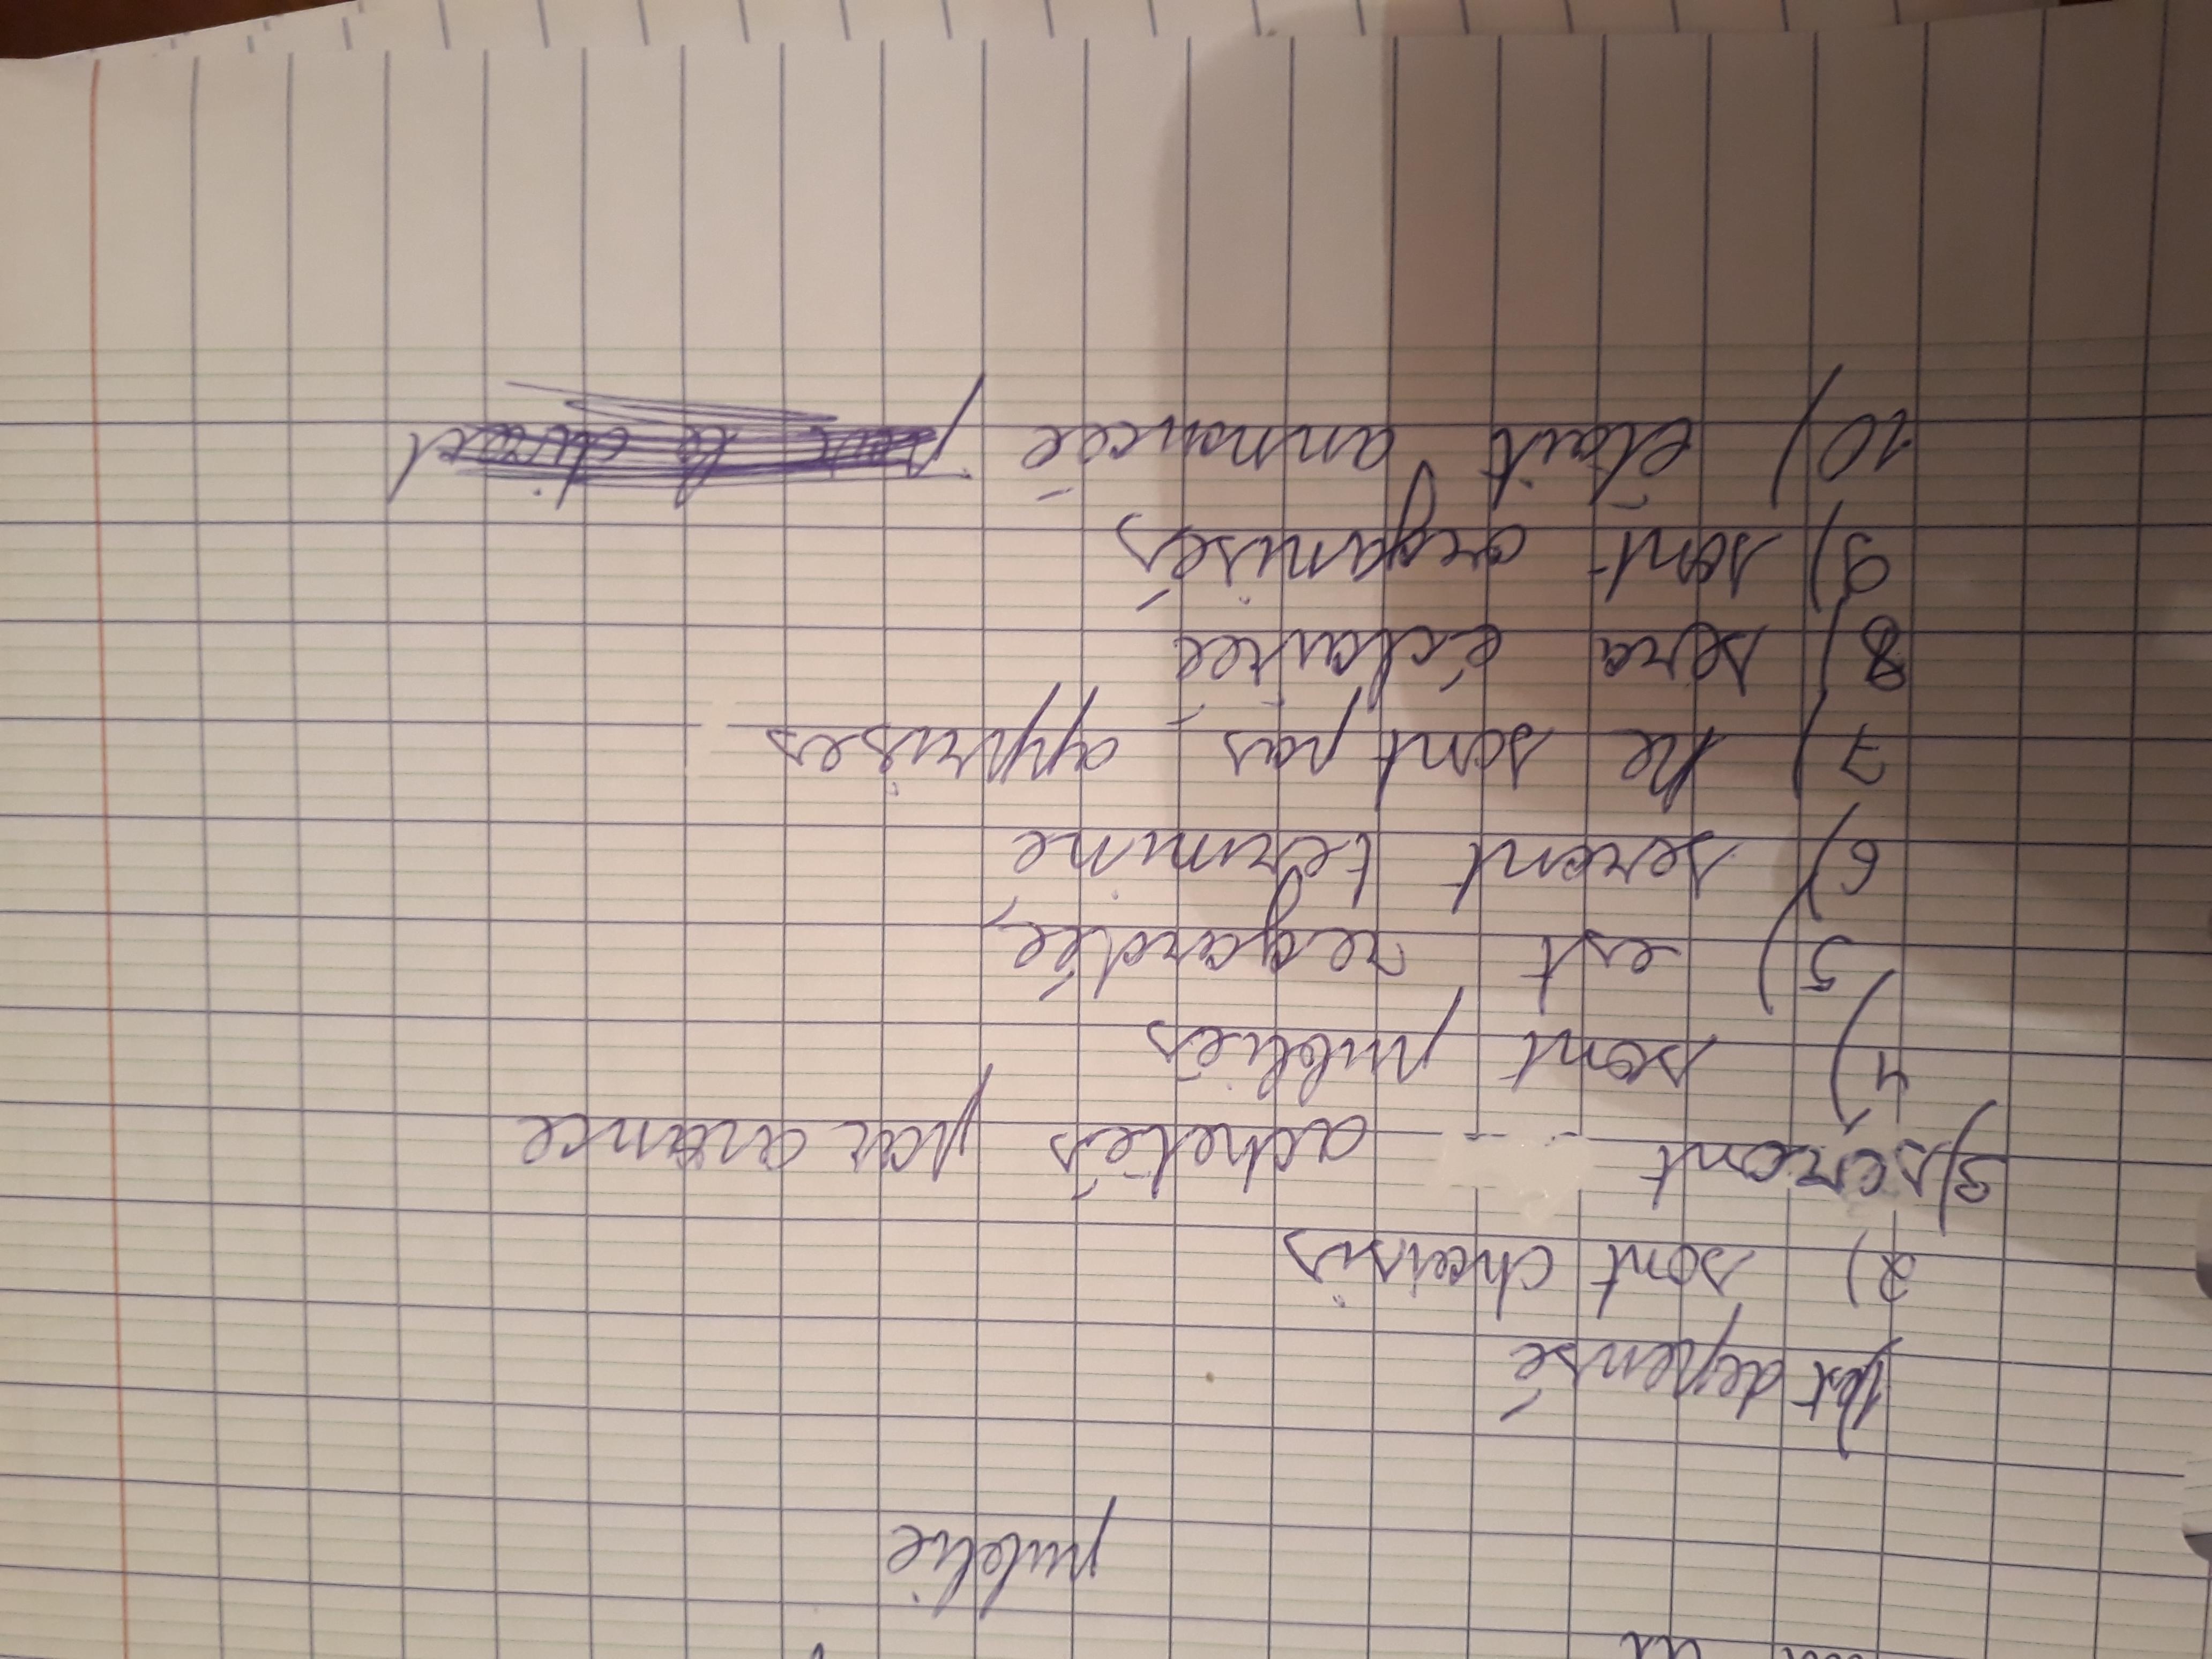 publie
1) est depensé
2) sont choisis
3) seront achetés par avance
4) sont publiés
5) est regardée,
6) seront termine
7) ne sont pas apprises
8) sera éclairée
9) sont organisés
10) était annoncée